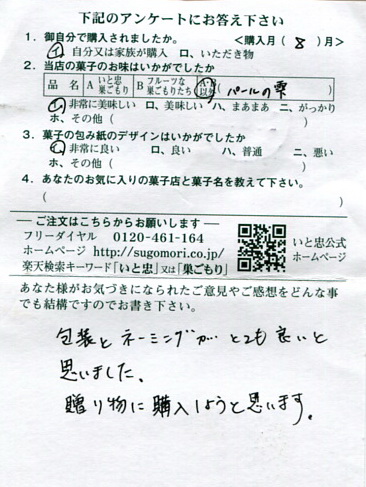 下記のアンケートにお答え下さい
1．御自分で購入されましたか。 <購入月（ 8 ）月>
イ、自分又は家族が購入 ロ、いただき物
2．当店の菓子のお味はいかがでしたか
品 名 A いと忠巣ごもり B フルーツな巣ごもりたち 以外 パールの雫
イ、非常に美味しい ロ、美味しい ハ、まあまあ ニ、がっかり
ホ、その他（ ）
3．菓子の包み紙のデザインはいかがでしたか
イ、非常に良い ロ、良い ハ、普通 ニ、悪い
ホ、その他（ ）
4．あなたのお気に入りの菓子店と菓子名を教えて下さい。
（ ）
ご注文はこちらからお願いします
フリーダイヤル 0120-461-164
ホームページ http://sugomori.co.jp/
楽天検索キーワード「いと忠」又は「巣ごもり」
いと忠公式
ホームページ
あなた様がお気づきになられたご意見やご感想をどんな事
でも結構ですのでお書き下さい。
包装とネーミングがとても良いと
思いました、
贈り物に購入しようと思います。